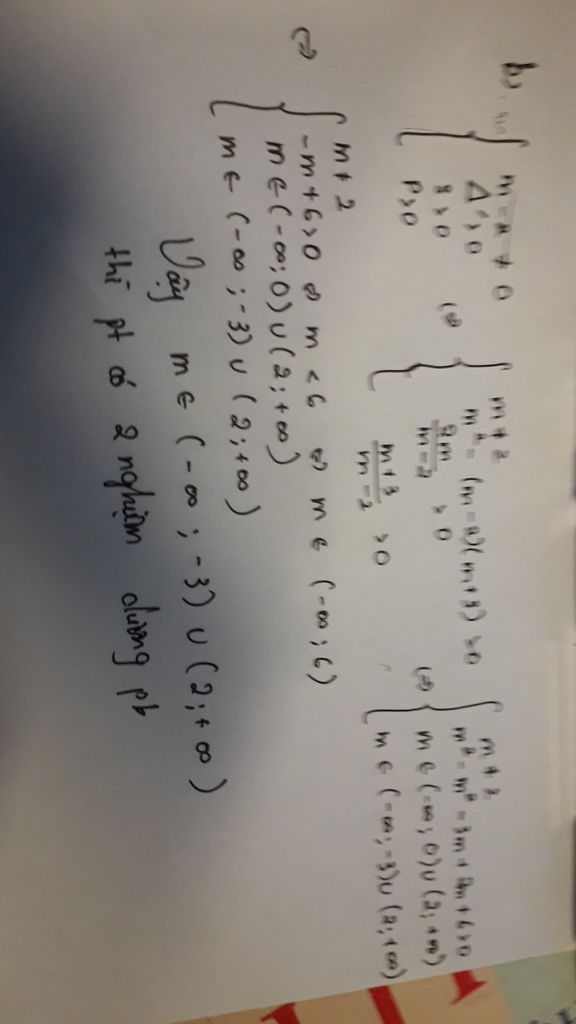 b) { m - 2 ≠ 0
Δ' > 0
S > 0
P > 0
(=) { m ≠ 2
m² - (m - 2)(m + 3) > 0
2m / m - 2 > 0
m + 3 / m - 2 > 0
(=) { m ≠ 2
m² - m² - 3m + 2m + 6 > 0
m ∈ (-∞; 0) ∪ (2; +∞)
m ∈ (-∞; -3) ∪ (2; +∞)
(=) { m ≠ 2
-m + 6 > 0 ⇔ m < 6 ⇔ m ∈ (-∞; 6)
m ∈ (-∞; 0) ∪ (2; +∞)
m ∈ (-∞; -3) ∪ (2; +∞)
Vậy m ∈ (-∞; -3) ∪ (2; +∞)
thì pt có 2 nghiệm dương pb